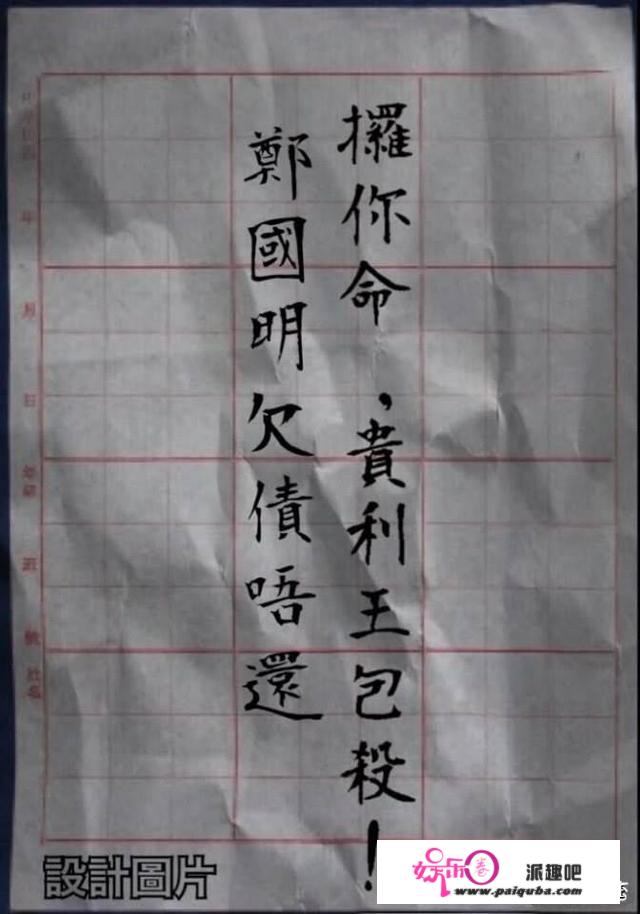 攞你命，貴利王包殺！
鄭國明欠債唔還
年
月
日
班
號
姓名
設計圖片
娱乐圈
派趣吧
www.paiquba.com